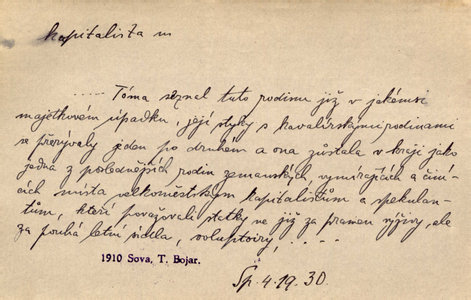 kapitalista m
..... Tóma seznal tuto rodinu již v jakémsi
majetkovém úpadku, její styky s kavalírskými rodinami
se přerývaly jeden po druhém a ona zůstala v kraji jako
jedna z posledních rodin zemanských, vymírajících a čině-
cích místa velkoměstským kapitalistům a spekulan-
tům, kteří považovali statky ne již za pramen výživy, ale
za pouhá letní sídla, voluptoiry, . . . .
1910 Sova, T. Bojar.
Sp. 4. 19. 30.